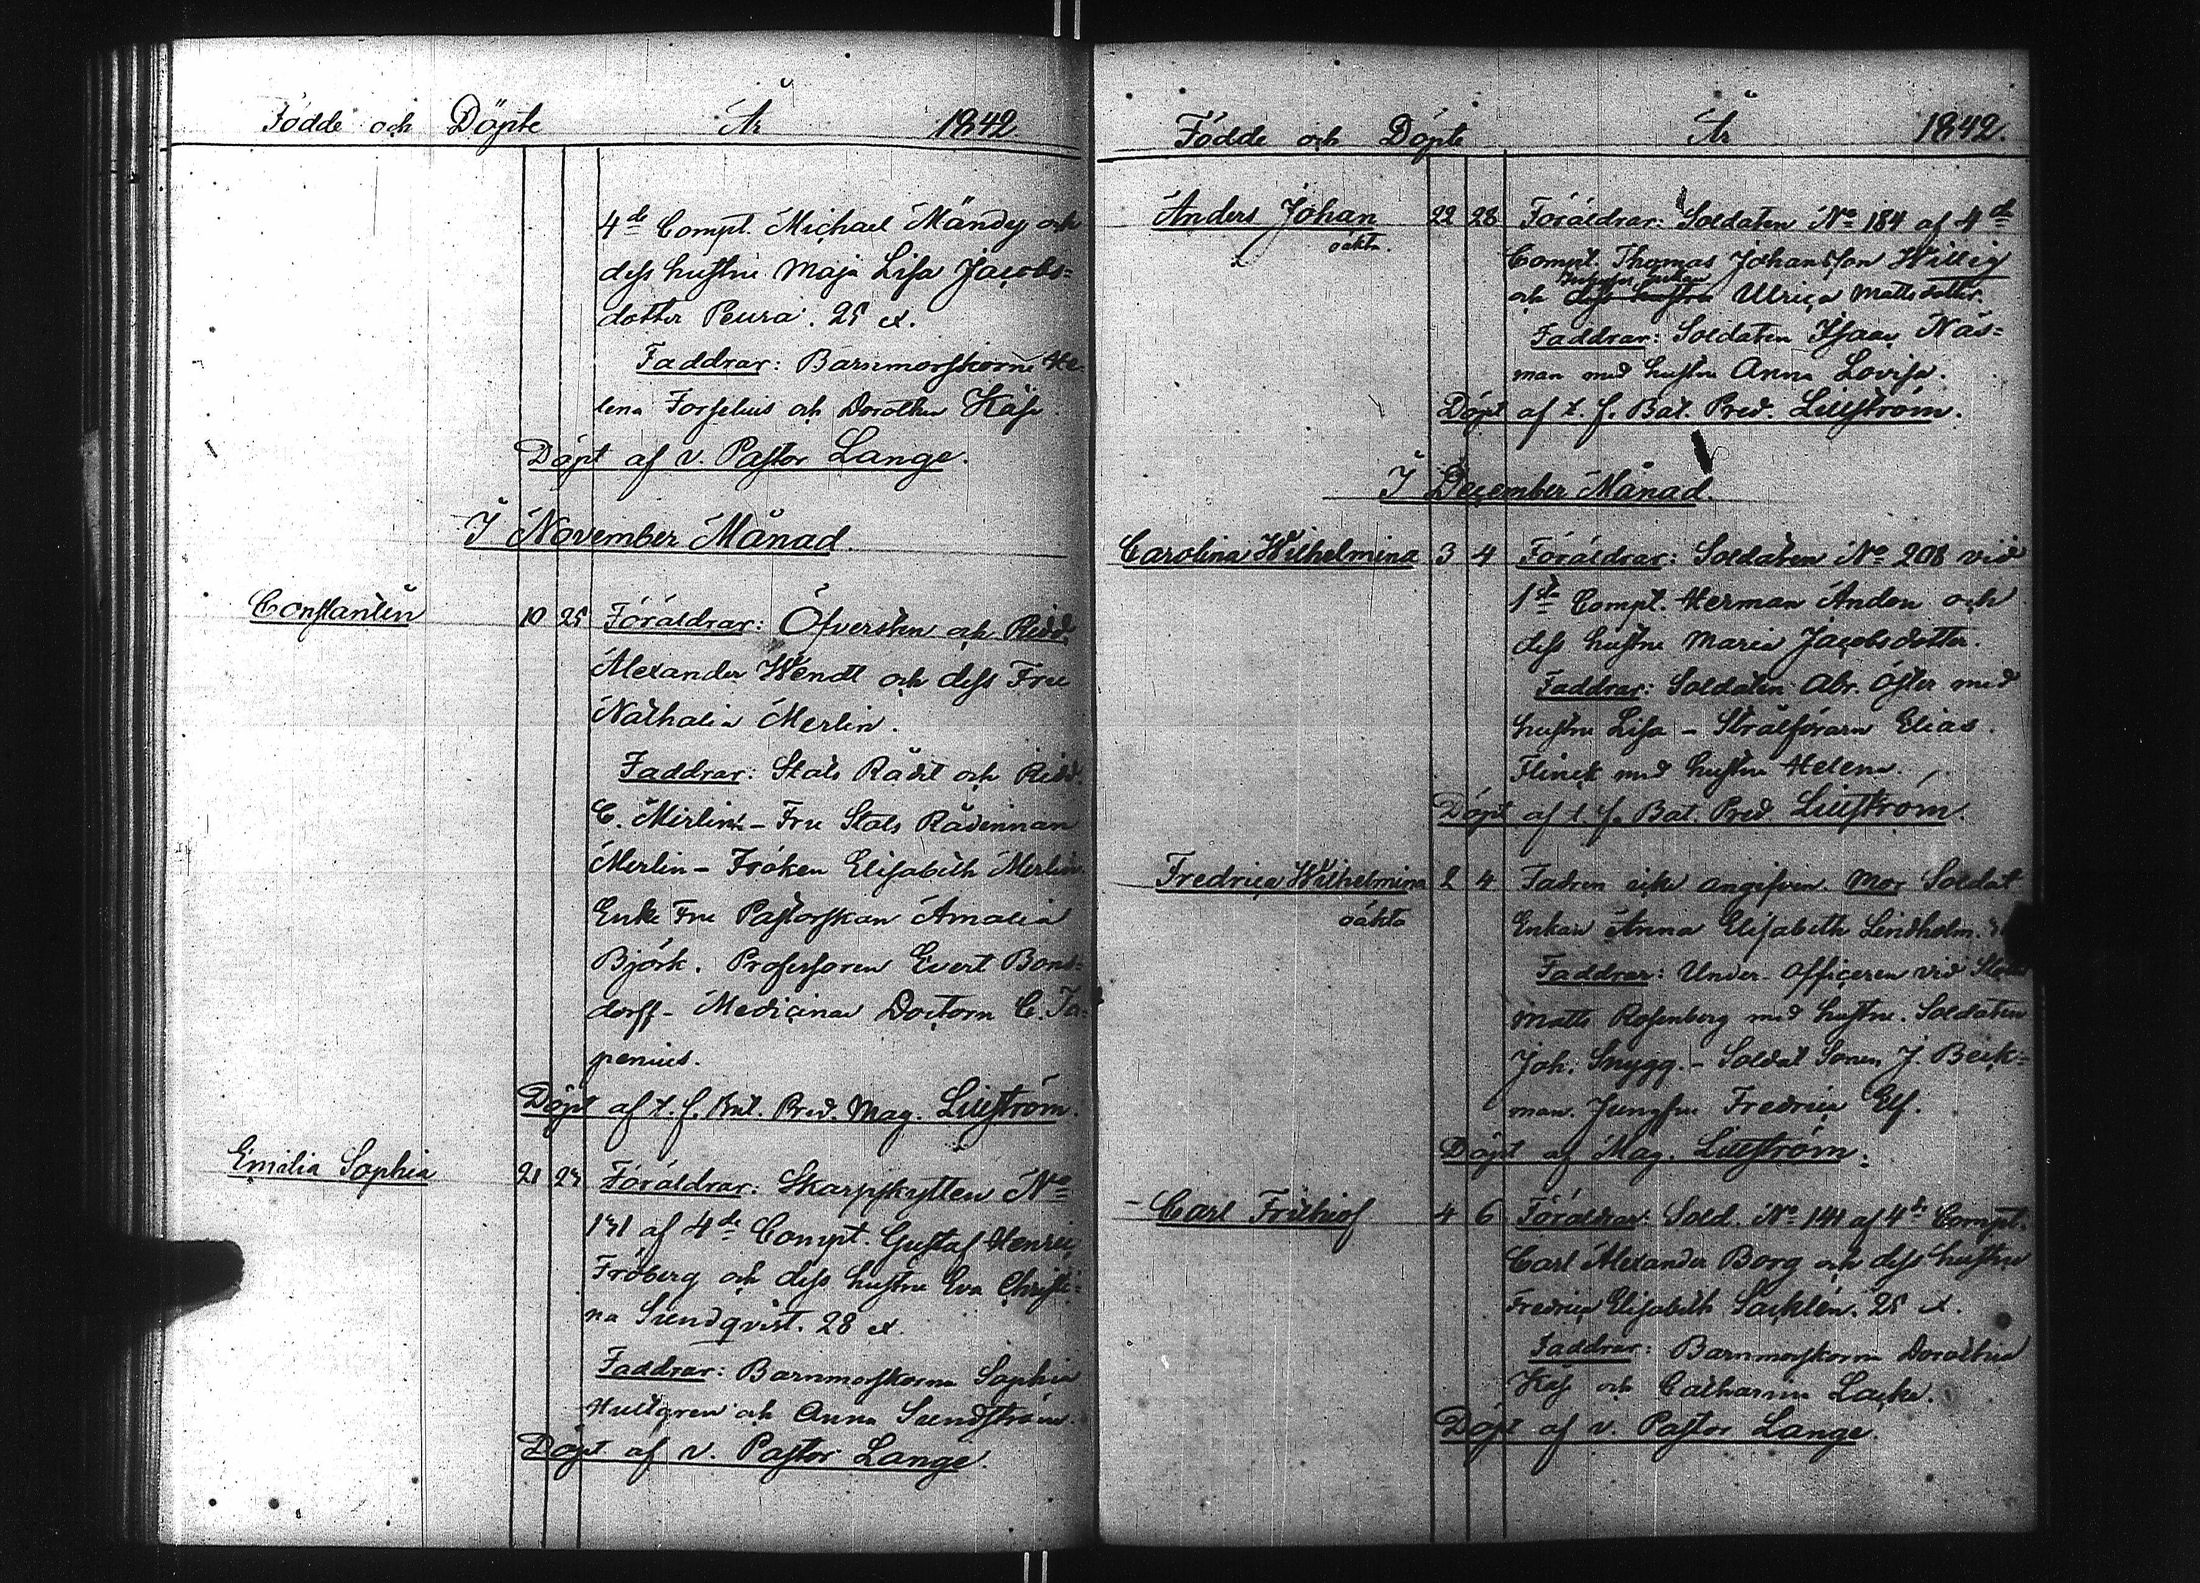 Födde och Döpte År 1842
4de Compt. Michael Mändy och
dess hustru Maja Lisa Jacobs=
dotter Peura. 25 
Faddrar: Barnmorskorne He
lena Forselius och Dorothea Häse.
Döpt af v. Pastor Lange.
I November Månad.
Constantin 10 25 Föräldrar: Öfversten och Ridd.
Alexander Wendt och dess Fru
Nathalia Merlin.
Faddrar: Stats Rådet och Ridd.
C. Merlin – Fru Stats Rådinnan
Merlin – Fröken Elisabeth Merlin
Enke Fru Pastorskan Amalia
Björk. Professoren Evert Bons=
dorff – Medicinae Doctorn C.
penius.
Döpt af t. f. Bat. Pred. Mag. Liljeström.
Emilia Sophia 21 Föräldrar: Skarpskytten No
131 af 4de Compt. Gustaf Henric
Fröberg och dess hustru Eva Christi=
na Sundqvist. 28 
Faddrar: Barnmorskorna Sophia
Hultgren och Anna Sundström.
Döpt af v. Pastor Lange.
Födde och Döpte År 1842.
Anders Johan 22 28 Föräldrar: Soldaten No 184 af 4de
oäkta.
Compt. Thomas Johansson Willig
och dess hustru Ulrica Mattsdotter.
Faddrar: Soldaten Isaac Näs=
man med hustru Anna Lovisa.
Döpt af t. f. Bat. Pred. Liljeström.
I December Månad.
Carolina Wilhelmina 3 4 Föräldrar: Soldaten No 208 vid
1sta Compt. Herman Andon och
dess hustru Maria Jacobsdotter.
Faddrar: Soldaten Abr. Öster med
hustru Lisa – Elias
Flinck med hustru Helena.
Döpt af t. f. Bat. Pred Liljeström.
Fredrica Wilhelmina 2 4 Fadren icke angifven. Mor Soldat
oäkta
Enkan Anna Elisabeth Lindholm.
Faddrar: Under-officeren vid
Matts Rosenberg med hustru. Soldaten
Joh. Snygg. – Soldat Sonen J. Beck=
man. Jungfru Fredrica Elf.
Döpt af Mag. Liljeström.
– Carl Frithiof 4 6 Föräldrar: Sold. No 141 af 4de Compt.
Carl Alexander Borg och dess hustru
Fredrica Elisabeth Sacklén. 25 
Faddrar: Barnmorskorna Dorothea
Häse och Catharina Lacke.
Döpt af v. Pastor Lange.